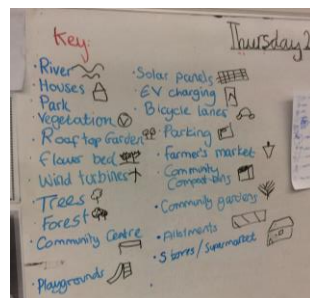 Key:
Thursday 2
• River
• Houses
• Park
• Vegetation
• Rooftop Garden
• Flower bed
• Wind turbines
• Trees
• Forest
• Community Centre
• Playgrounds
• Solar panels
• EV charging
• Bicycle lanes
• Parking
• Farmer's market
• Community
Compost bins
• Community gardens
• Allotments
• Stores/supermarket